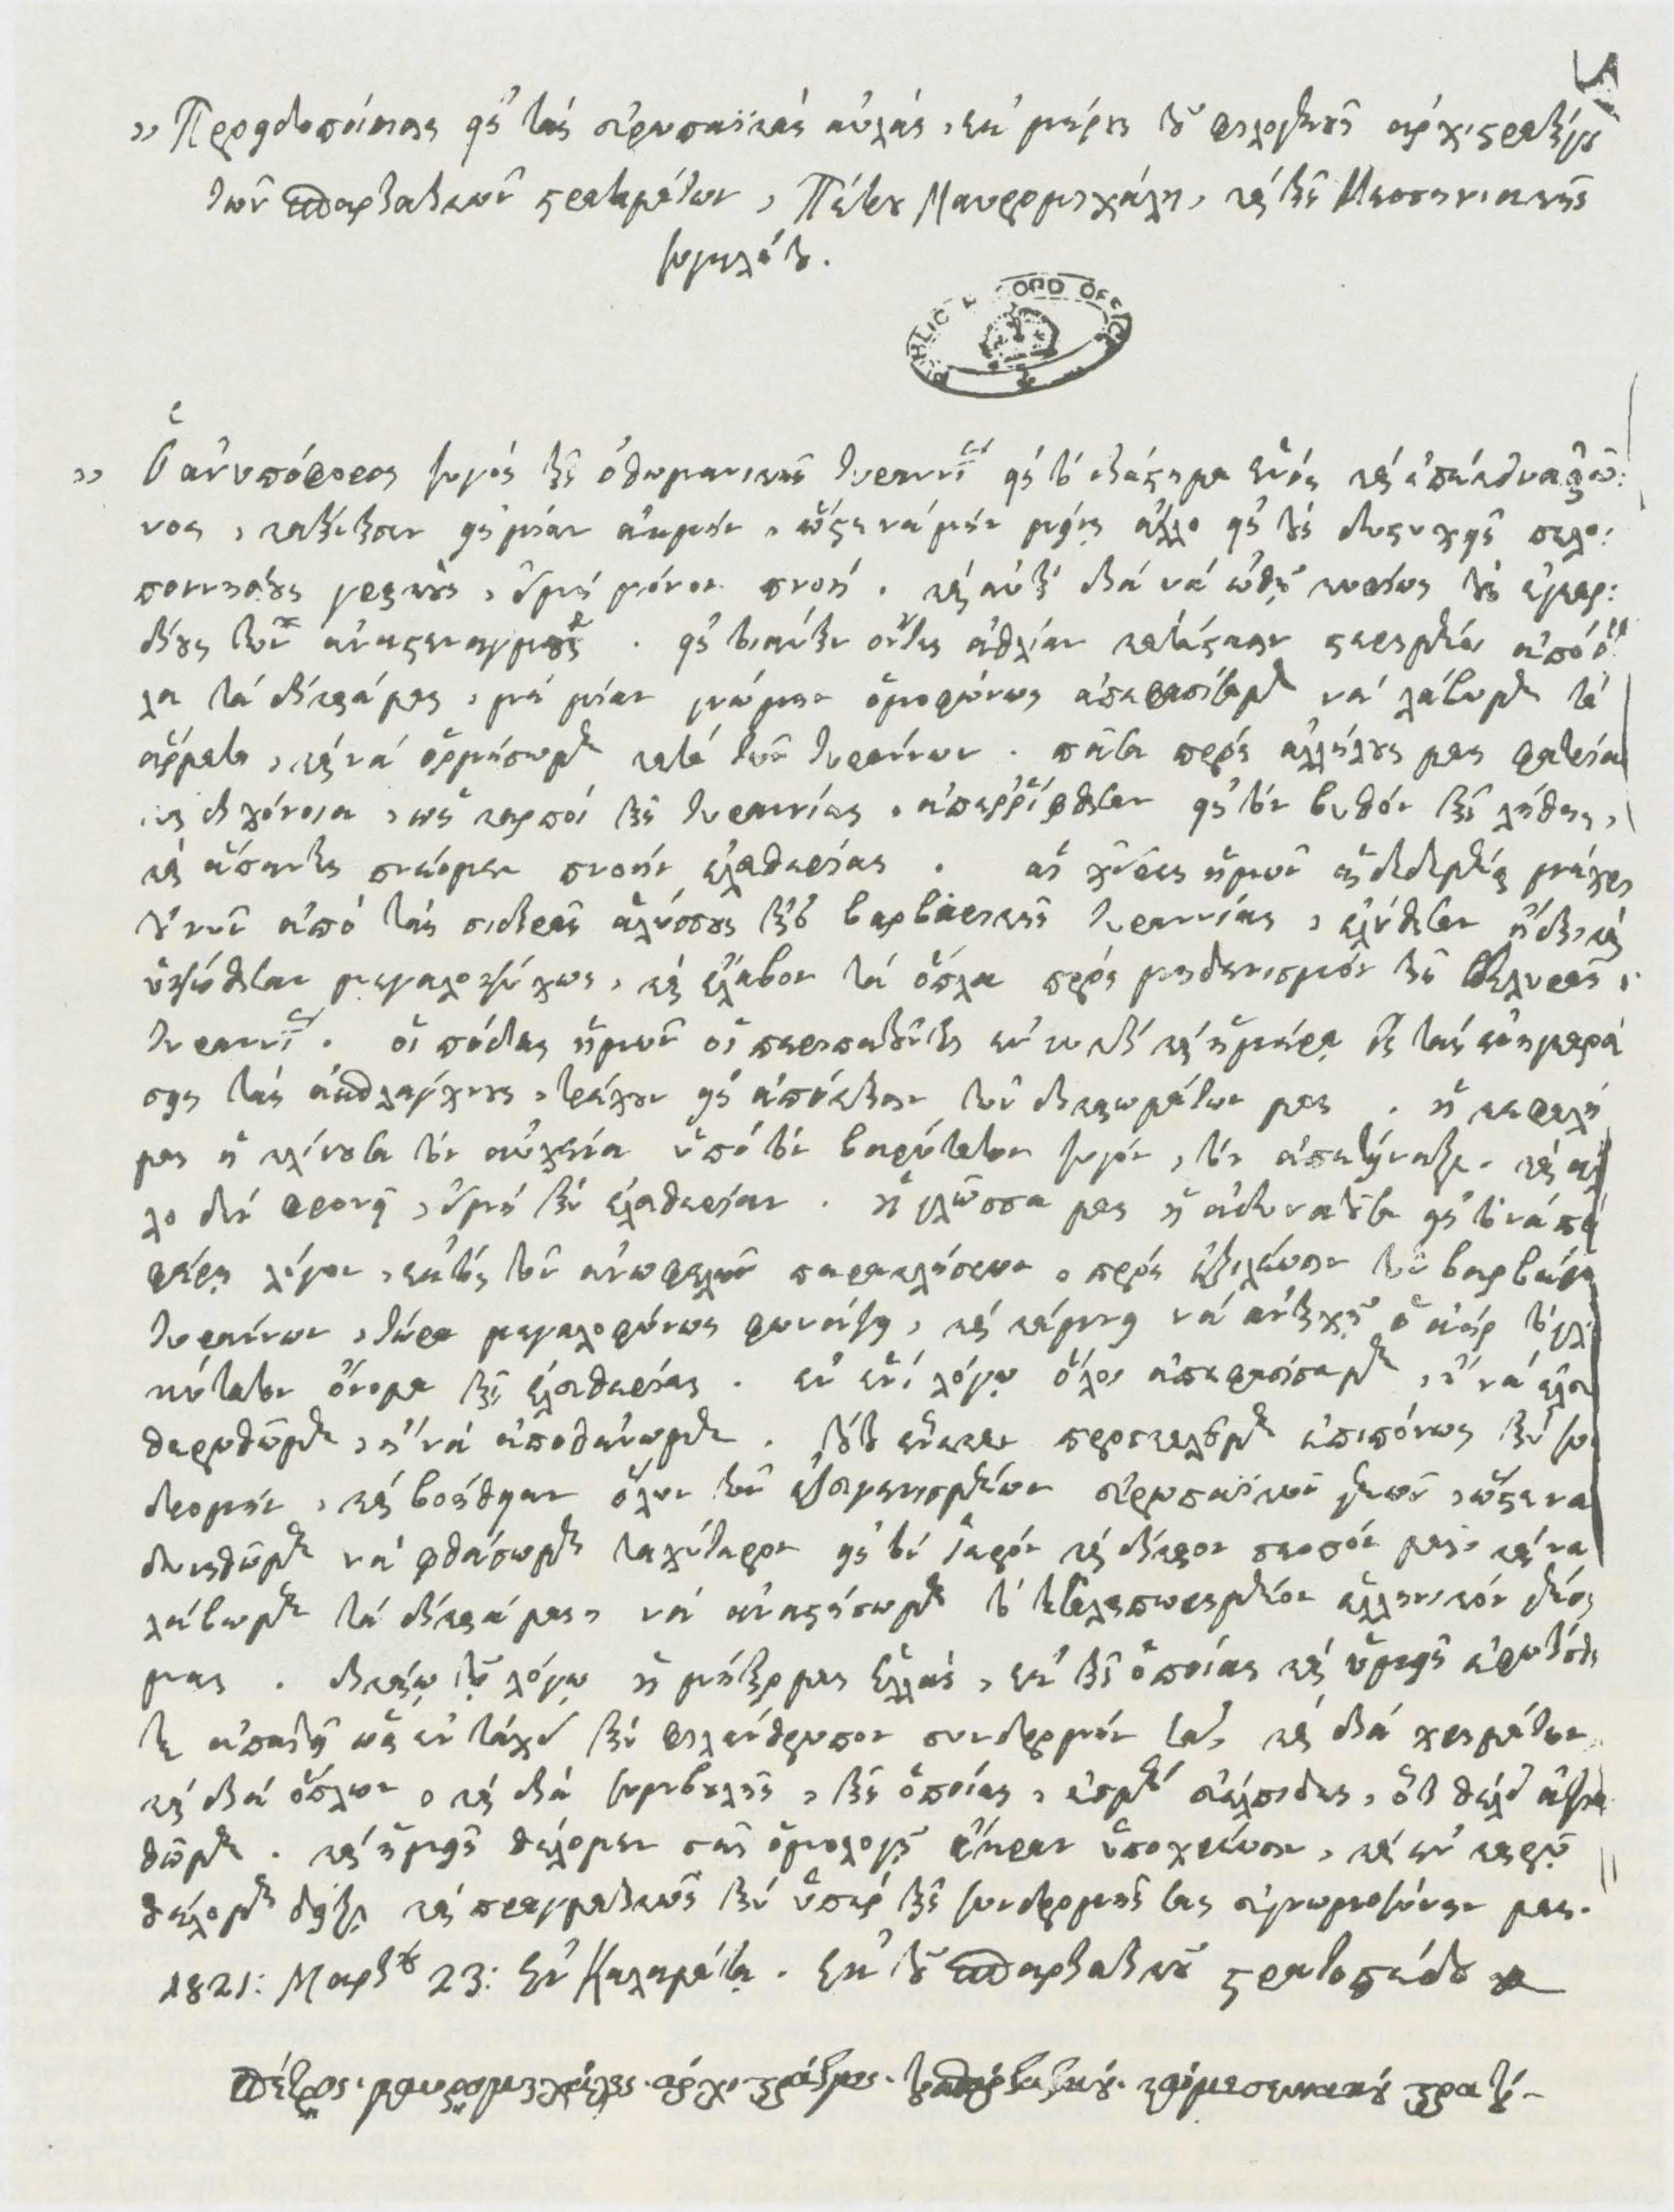 ,, Προειδοποίησις εἰς τὰς εὐρωπαϊκὰς αὐλὰς, ἐκ μέρους τοῦ φιλογενοῦς ἀρχιστρατήγου
τῶν σπαρτιατικῶν στρατευμάτων, Πέτρου Μαυρομιχάλη, καὶ τῆς Μεσσηνιακῆς
συγκλήτου.
PUBLIC RECORD OFFICE
,, Ὁ ἀνυπόφορος ζυγὸς τῆς ὀθωμανικῆς τυραννίας εἰς τὸ διάστημα ἑνὸς καὶ ἐπέκεινα αἰῶ:
νος, κατήντησεν εἰς μίαν ἀκμὴν, ὥστε νὰ μὴν μείνῃ ἄλλο εἰς τοὺς δυστυχεῖς πελο:
ποννησίους γραικοὺς, εἰμὴ μόνον πνοή. καὶ αὐτὴ διὰ νὰ ὠθῇ κυρίως τοὺς ἐγκαρ:
δίους των ἀναστεναγμούς. εἰς τοιαύτην ὄντες ἀθλίαν κατάστασιν στερημένοι ἀπὸ ὅ
λα τὰ δίκαιά μας, μὲ μίαν γνώμην ὁμοφώνως ἀπεφασίσαμεν νὰ λάβωμεν τὰ
ἄρματα, καὶ νὰ ὁρμήσωμεν κατὰ τῶν τυράννων. πᾶσα πρὸς ἀλλήλους μας φατρία
καὶ διχόνοια, ὡς καρποὶ τῆς τυραννίας, ἀπερρίφθησαν εἰς τὸν βυθὸν τῆς λήθης,
καὶ ἅπαντες πνέομεν πνοὴν ἐλευθερίας. αἱ χεῖρες ἡμῶν αἱ δεδεμέναι μέχρι
τοῦ νῦν ἀπὸ τὰς σιδηρᾶς ἁλύσσους τῆς βαρβαρικῆς τυραννίας, ἐλύθησαν ἤδη, καὶ
ὑψώθησαν μεγαλοψύχως, καὶ ἔλαβον τὰ ὅπλα πρὸς μηδενισμὸν τῆς βδελυρᾶς
τυραννίας. οἱ πόδες ἡμῶν οἱ περιπατοῦντες ἐν νυκτὶ καὶ ἡμέρᾳ εἰς τὰς ἐναγκαρεύ
σεις τὰς ἀσπλάγχνους, τρέχουν εἰς ἀπόκτησιν τῶν δικαιωμάτων μας. ἡ κεφαλή
μας ἡ κλίνουσα τὸν αὐχένα ὑπὸ τὸν βαρύτατον ζυγὸν, τὸν ἀπετίναξε. καὶ ἄλ
λο δὲν φρονεῖ, εἰμὴ τὴν ἐλευθερίαν. ἡ γλῶσσα μας ἡ ἀδυνατοῦσα εἰς τὸ νὰ προ
φέρῃ λόγον, ἐκτὸς τῶν ἀνωφελῶν παρακλήσεων, πρὸς ἐξιλέωσιν τῶν βαρβάρων
τυράννων, τώρα μεγαλοφώνως φωνάζει, καὶ κάμνει νὰ ἀντηχῇ ὁ ἀὴρ τὸ γλυ
κύτατον ὄνομα τῆς ἐλευθερίας. ἐν ἑνὶ λόγῳ ὅλοι ἀπεφασίσαμεν, ἢ νὰ ἐλευ
θερωθῶμεν, ἢ νὰ ἀποθάνωμεν. τούτου ἕνεκεν προσκαλοῦμεν ἐπιπόνως τὴν συν
δρομὴν, καὶ βοήθειαν ὅλων τῶν ἐξευγενισμένων εὐρωπαϊκῶν γενῶν, ὥστε νὰ
δυνηθῶμεν νὰ φθάσωμεν ταχύτερον εἰς τὸν ἱερὸν καὶ δίκαιον σκοπόν μας, καὶ νὰ
λάβωμεν τὰ δίκαιά μας, νὰ ἀναστήσωμεν τὸ τεταλαιπωρημένον ἑλληνικὸν γένος
μας. δικαίῳ τῷ λόγῳ ἡ μήτηρ μας Ἑλλὰς, ἐκ τῆς ὁποίας καὶ ὑμεῖς ἐφωτίσθη
τε ἀπαιτεῖ ὡς ἐν τάχει τὴν φιλάνθρωπον συνδρομήν σας, καὶ διὰ χρημάτων,
καὶ διὰ ὅπλων, καὶ διὰ συμβουλῆς, τῆς ὁποίας, ἐσμὲν εὐέλπιδες, ὅτι θέλει ἀξιω
θῶμεν. καὶ ἡμεῖς θέλομεν σᾶς ὁμολογεῖ ἄκραν ὑποχρέωσιν, καὶ ἐν καιρῷ
θέλομεν δείξῃ καὶ πραγματικῶς τὴν ὑπὲρ τῆς συνδρομῆς σας εὐγνωμοσύνην μας.
1821: Μαρτίου 23: Ἐν Καλαμάτᾳ. Ἐκ τοῦ σπαρτιατικοῦ στρατοπέδου
Πέτρος μαυρομιχάλης ἀρχιστράτηγος τοῦ σπαρτιατικοῦ καὶ μεσσηνιακοῦ στρατοῦ